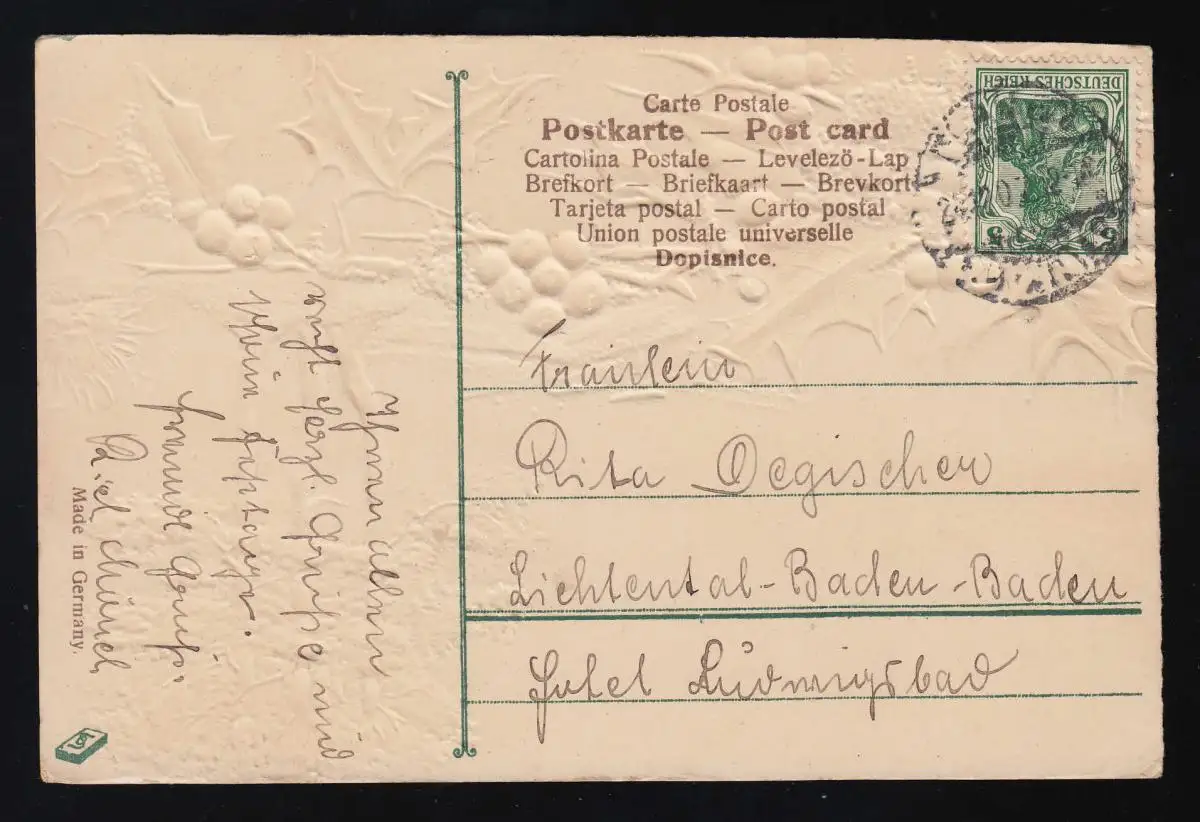 Carte Postale
Postkarte — Post card
Cartolina Postale — Levelező-Lap
Brefkort — Briefkaart — Brevkort
Tarjeta postal — Carto postal
Union postale universelle
Dopisnice.
DEUTSCHES REICH
5 5
Fräulein
Rita Oegischer
Lichtental-Baden-Baden
Hotel Ludwigsbad
Ihnen allen
recht herzl. Grüße und
Festtage.
Made in Germany.